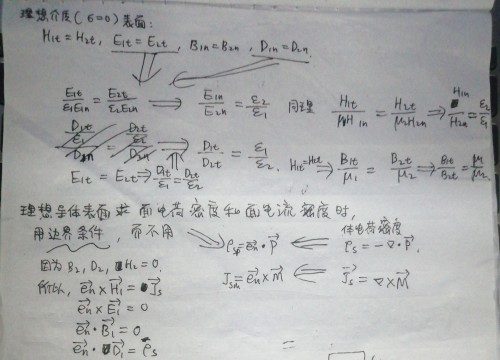 理想介质(σ=0)表面:
H1t=H2t, E1t=E2t, B1n=B2n, D1n=D2n.
E1t/ε1E1n = E2t/ε2E2n ⟹ E1n/E2n = ε2/ε1 同理 H1t/μ1H1n = H2t/μ2H2n ⟹ H1n/H2n = ε2/ε1
D1t/D2t = ε1/ε2. H1t=H2t ⟹ B1t/μ1 = B2t/μ2 ⟹ B1t/B2t = μ1/μ2
E1t=E2t ⟹ D1t/ε1 = D2t/ε2
理想导体表面求面电荷密度和面电流密度时,
用边界条件, 而不用 ρsp=en·P ⟸ 体电荷密度 ρs=-▽·P.
因为B2, D2, H2=0. Jsm=en×M ⟸ Js=▽×M
所以, en×H1=Js
en×E1=0
en·B1=0
en·D1=ρs
=